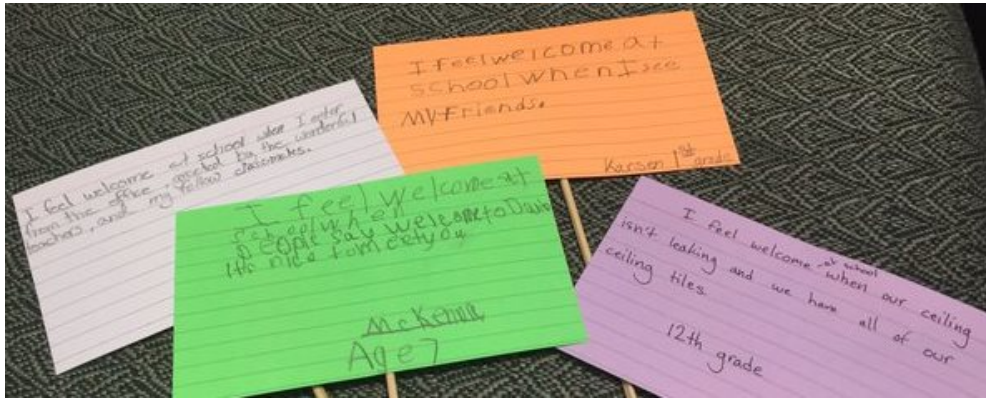 I feel welcome at
school when I see
My Friends.
Karson 1st grade
I feel welcome at school when I enter
from the office, greeted by the wonderful
teachers, and my fellow classmates.
I feel welcome at
school when
people say welcome to
It's nice to meet you
McKenna
Age 7
I feel welcome at school when our ceiling
isn't leaking and we have all of our
ceiling tiles
12th grade